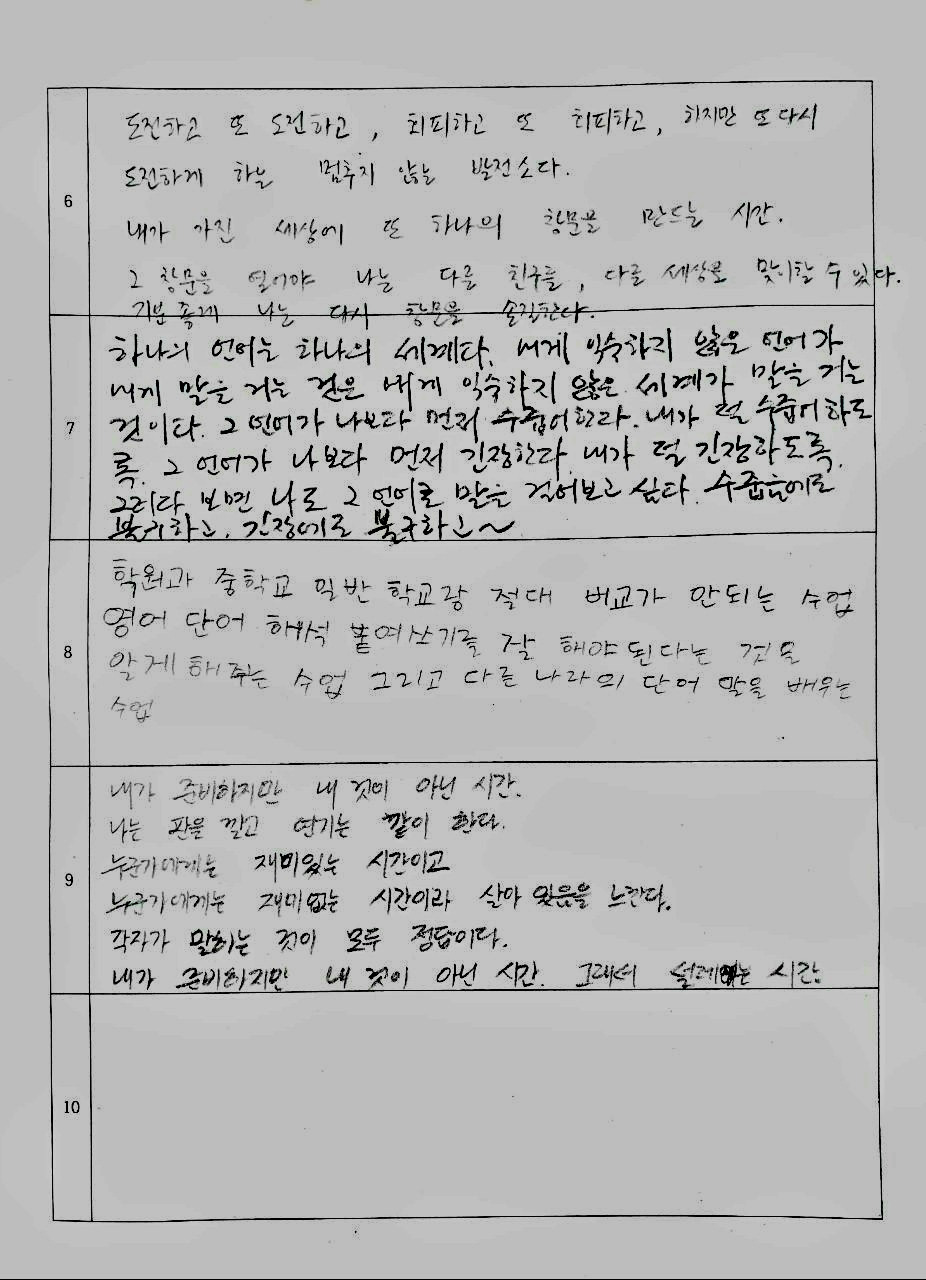 6
도전하고 또 도전하고, 회피하고 또 회피하고, 하지만 또 다시
도전하게 하는 멈추지 않는 발전소다.
내가 가진 세상에 또 하나의 창문을 만드는 시간.
그 창문을 열어야 나는 다른 친구를, 다른 세상을 맞이할 수 있다.
기분 좋게 나는 다시 창문을 손질한다.
7
하나의 언어는 하나의 세계다. 내게 익숙하지 않은 언어가
내게 말을 거는 것은 내게 익숙하지 않은 세계가 말을 거는
것이다. 그 언어가 나보다 먼저 수줍어한다. 내가 덜 수줍어하도
록. 그 언어가 나보다 먼저 긴장한다. 내가 덜 긴장하도록.
그러다 보면 나도 그 언어로 말을 걸어보고 싶다. 수줍음에도
불구하고, 긴장에도 불구하고~
8
학원과 중학교 일반 학교랑 절대 비교가 안되는 수업
영어 단어 해석 붙여쓰기를 잘 해야 된다는 것을
알게 해 주는 수업 그리고 다른 나라의 단어 말을 배우는
수업
9
내가 준비하지만 내 것이 아닌 시간.
나는 판을 깔고 연기는 같이 한다.
누군가에게는 재미있는 시간이고
누군가에게는 재미없는 시간이라 살아 있음을 느낀다.
각자가 말하는 것이 모두 정답이다.
내가 준비하지만 내 것이 아닌 시간. 그래서 설레는 시간.
10